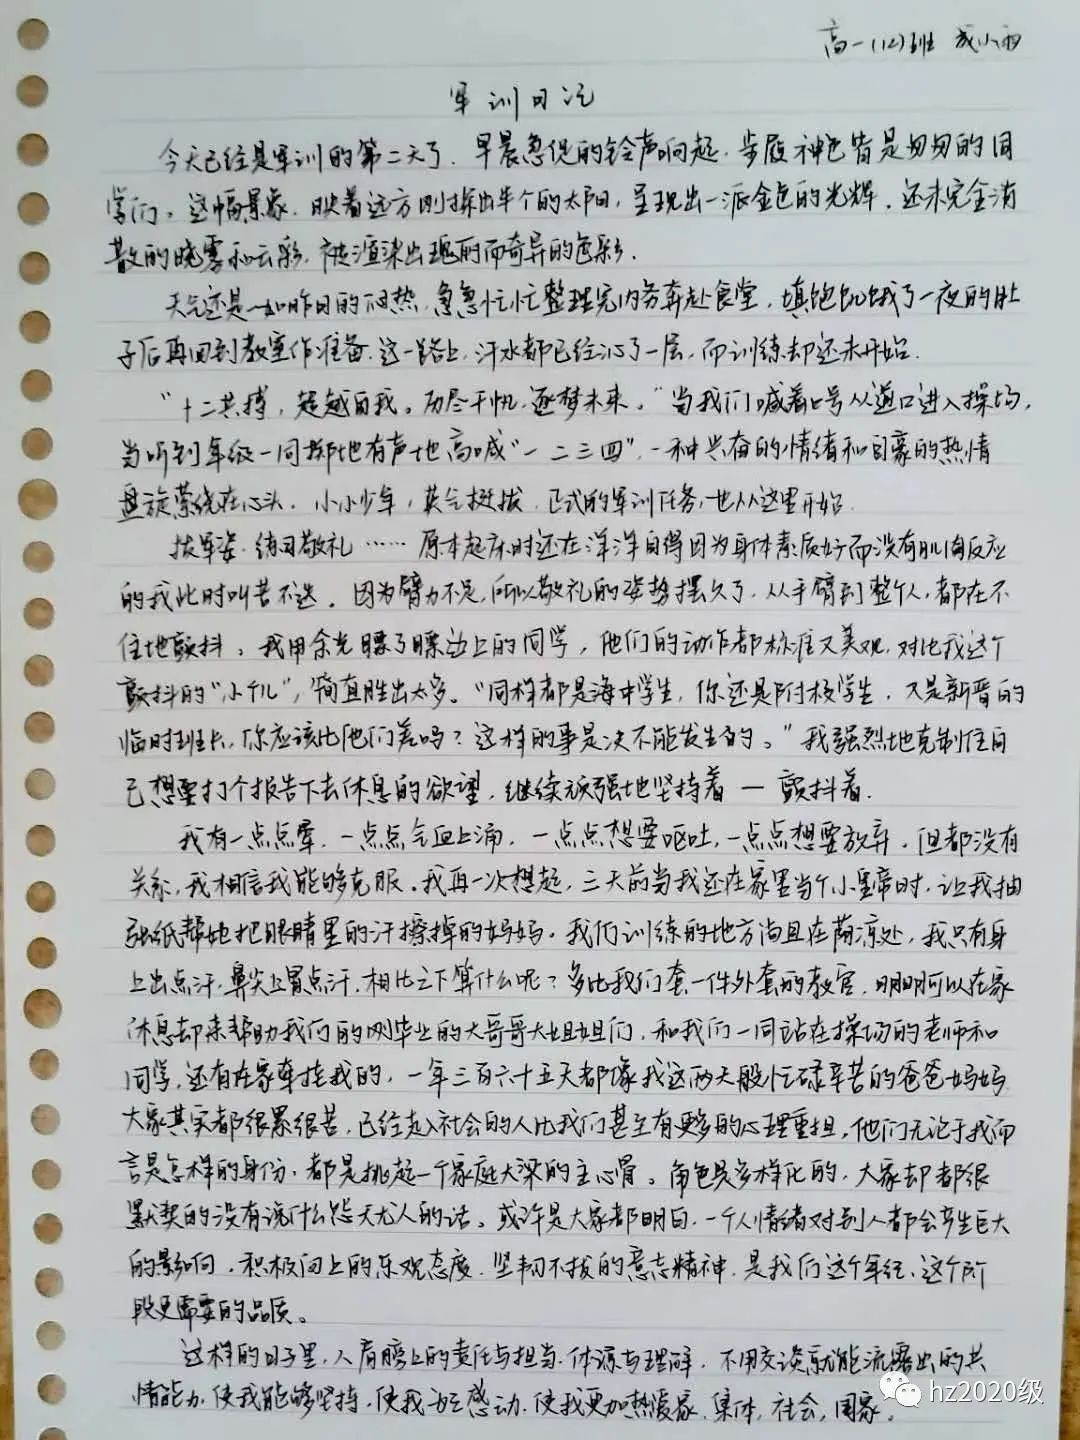 高一(12)班 成小雨
军训日记
今天已经是军训的第二天了，早晨急促的铃声响起，步履神色皆是匆匆的同
学们。这幅景象，映着远方刚探出半个的太阳，呈现出一派金色的光辉，还未完全消
散的晓雾和云彩，被渲染出瑰丽而奇异的色彩.
天气还是一如昨日的闷热，急急忙忙整理完内务奔赴食堂，填饱饥饿了一夜的肚
子后再回到教室作准备.这一路上，汗水都已经沁了一层，而训练却还未开始.
“十二共搏，超越自我。历尽千帆，逐梦未来。”当我们喊着口号从道口进入操场，
当听到年级一同掷地有声地高喊“一二三四”，一种兴奋的情绪和自豪的热情
盘旋萦绕在心头. 小小少年，英气挺拔. 正式的军训任务，也从这里开始.
拔军姿、练习敬礼……原本起床时还在洋洋自得因为身体素质好而没有肌肉反应
的我此时叫苦不迭。因为臂力不足，所以敬礼的姿势摆久了，从手臂到整个人，都在不
住地颤抖。我用余光瞟了瞟边上的同学，他们的动作都标准又美观，对比我这个
颤抖的“小个儿”，简直胜出太多。“同样都是海中学生，你还是附校学生，又是新晋的
临时班长，你应该比他们差吗？这样的事是决不能发生的。”我强烈地克制住自
己想要打个报告下去休息的欲望，继续顽强地坚持着 — 颤抖着.
我有一点点晕，一点点气血上涌，一点点想要呕吐，一点点想要放弃. 但都没有
关系，我相信我能够克服. 我再一次想起，三天前当我还在家里当个小皇帝时，让我抽
张纸帮她把眼睛里的汗擦掉的妈妈. 我们训练的地方尚且在荫凉处，我只有身
上出点汗，鼻尖上冒点汗，相比之下算什么呢？多比我们套一件外套的教官，明明可以在家
休息却来帮助我们的刚毕业的大哥哥大姐姐们，和我们一同站在操场的老师和
同学，还有在家牵挂我的，一年三百六十五天都像我这两天般忙碌辛苦的爸爸妈妈
大家其实都很累很苦，已经走入社会的人比我们甚至有更多的心理重担，他们无论于我而
言是怎样的身份，都是挑起一个家庭大梁的主心骨。角色是多样化的，大家却都很
默契的没有说什么怨天尤人的话。或许是大家都明白，一个人情绪对别人都会产生巨大
的影响，积极向上的乐观态度、坚韧不拔的意志精神，是我们这个年纪、这个阶
段更需要的品质。
这样的日子里，人肩膀上的责任与担当、体谅与理解，不用交谈就能流露出的共
情能力，使我能够坚持，使我为之感动，使我更加热爱家，集体，社会，国家。
hz2020级